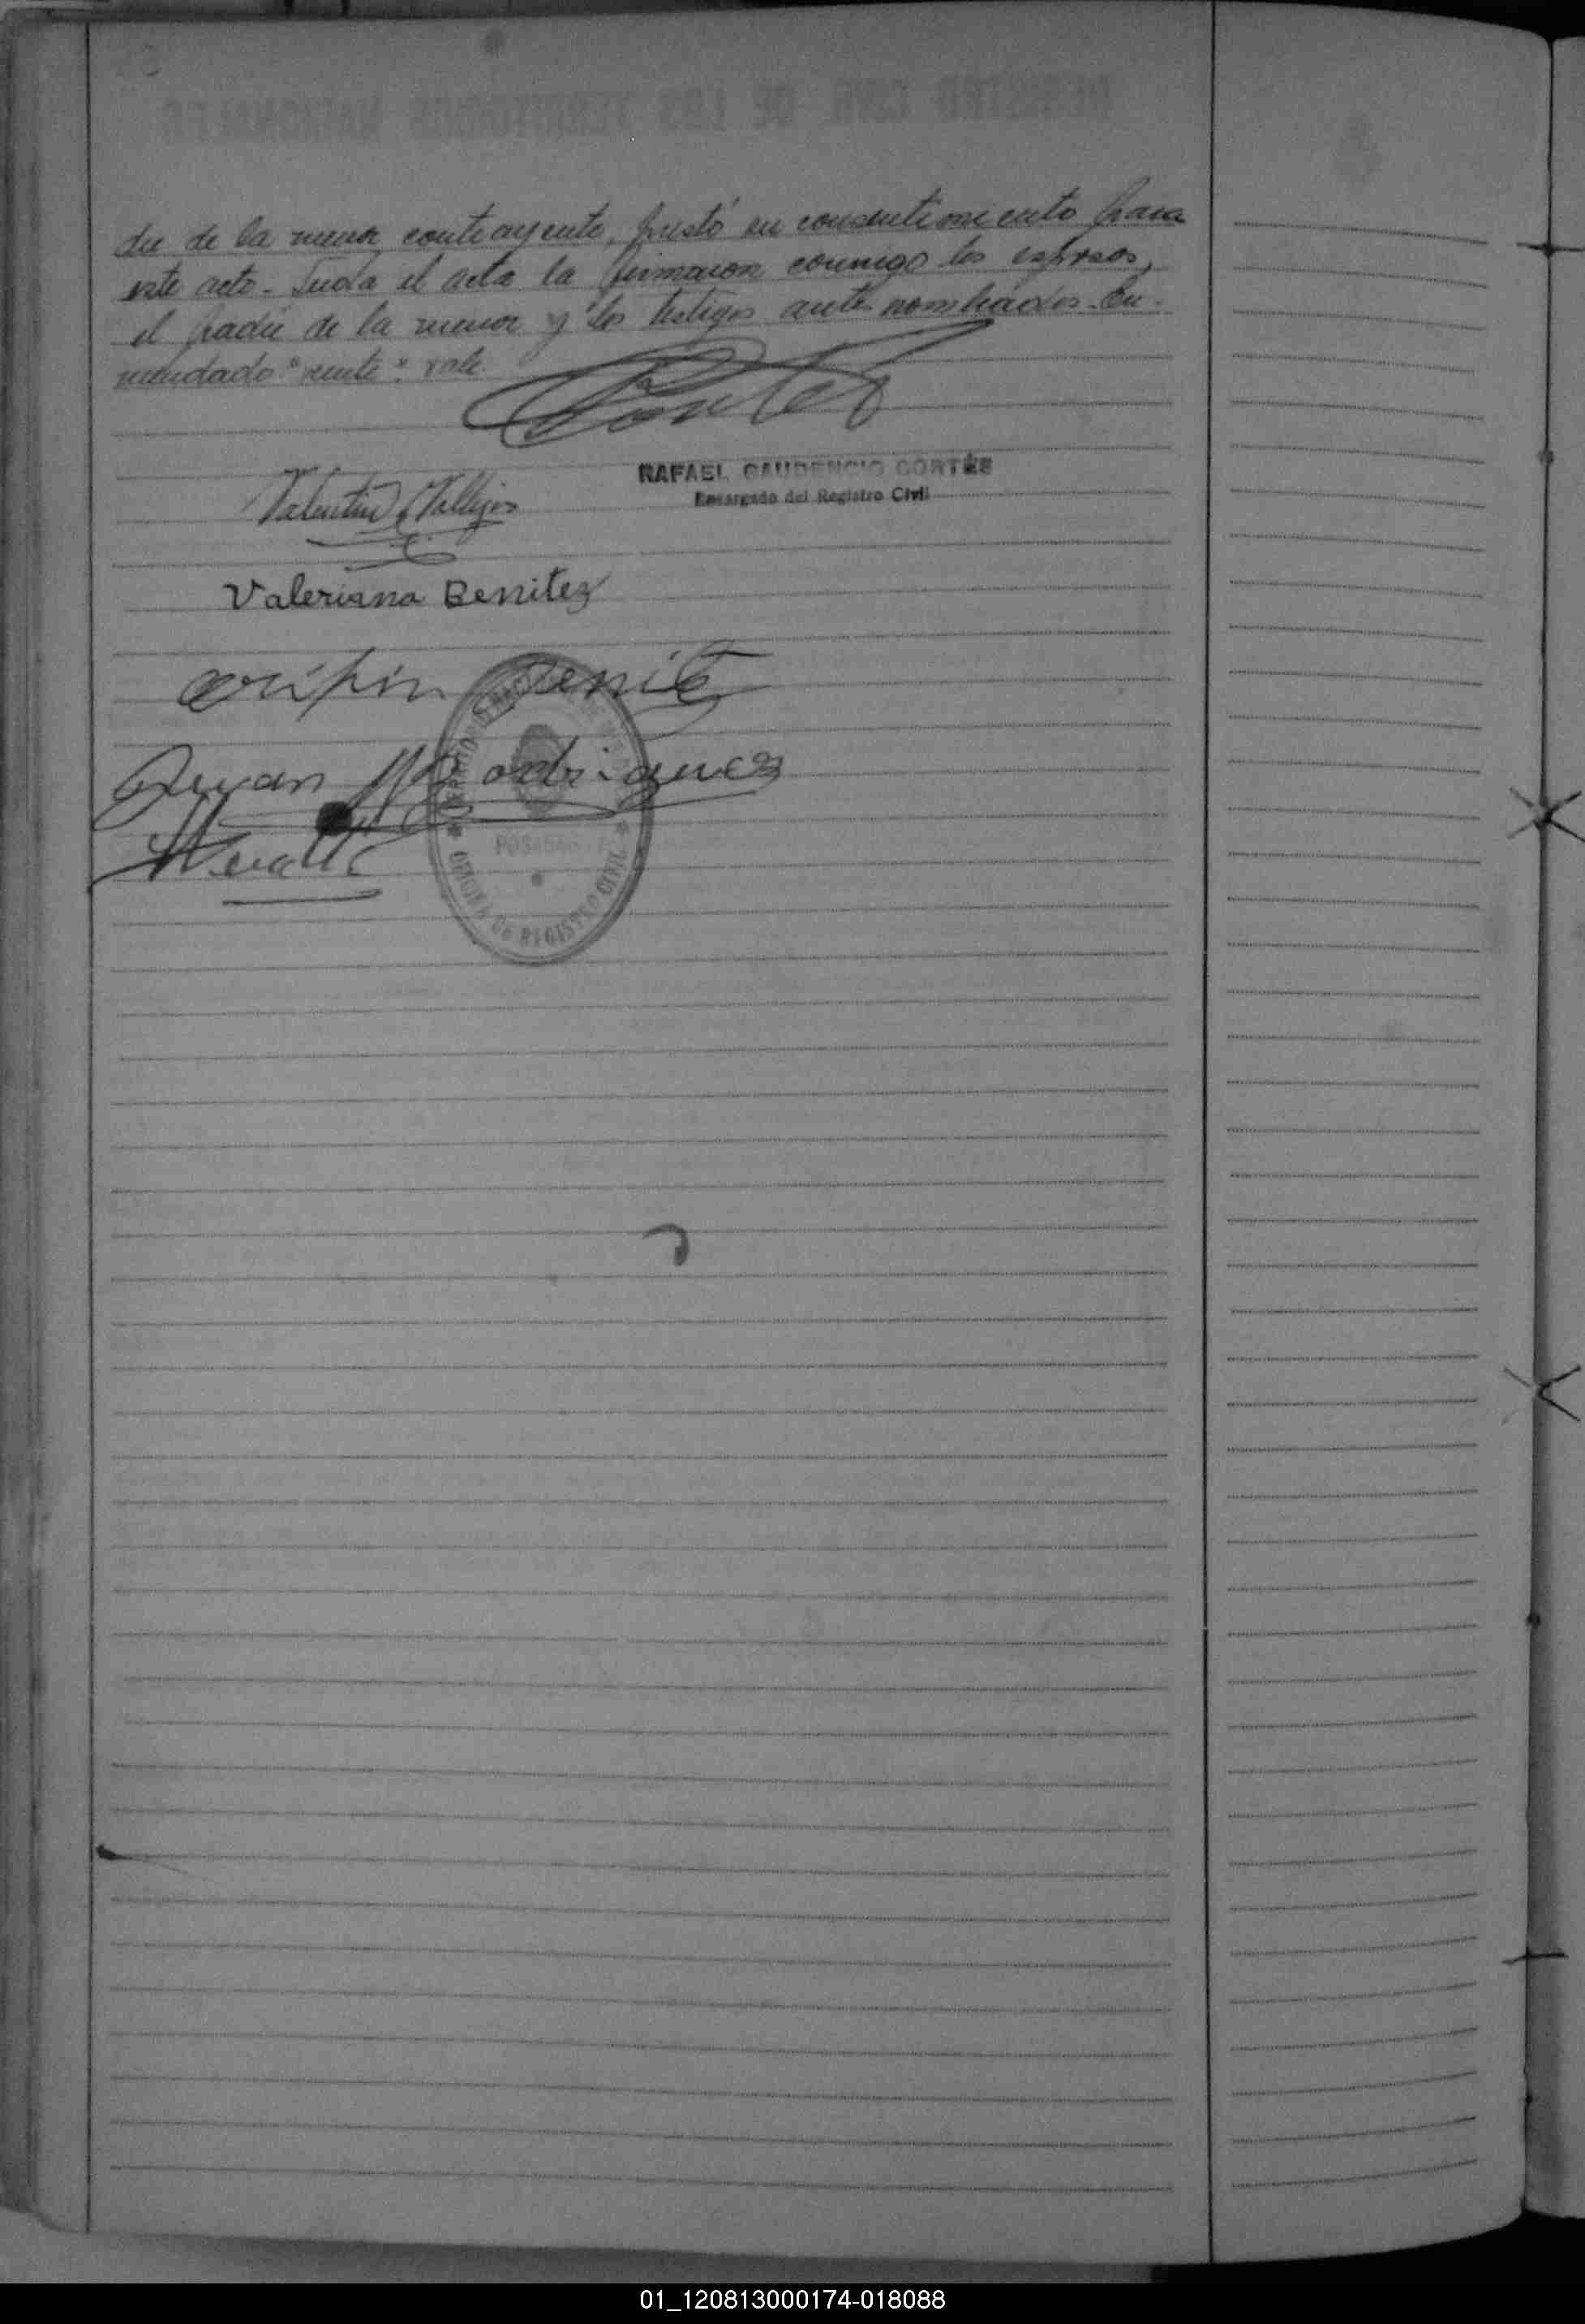 REGISTRO CIVIL DE LOS TERRITORIOS NACIONALES
dre de la menor contrayente, prestó su consentimiento para
este acto. Leída el acta la firmaron conmigo los esposos,
el padre de la menor y los testigos ante nombrados. En-
mendado "veinte": vale.
Cortes
RAFAEL GAUDENCIO CORTÉS
Encargado del Registro Civil
Valentin Vallejos
Valeriana Benitez
crispin Benite
Juan Rodriguez
POSADAS
OFICINA DE REGISTRO CIVIL
01_120813000174-018088